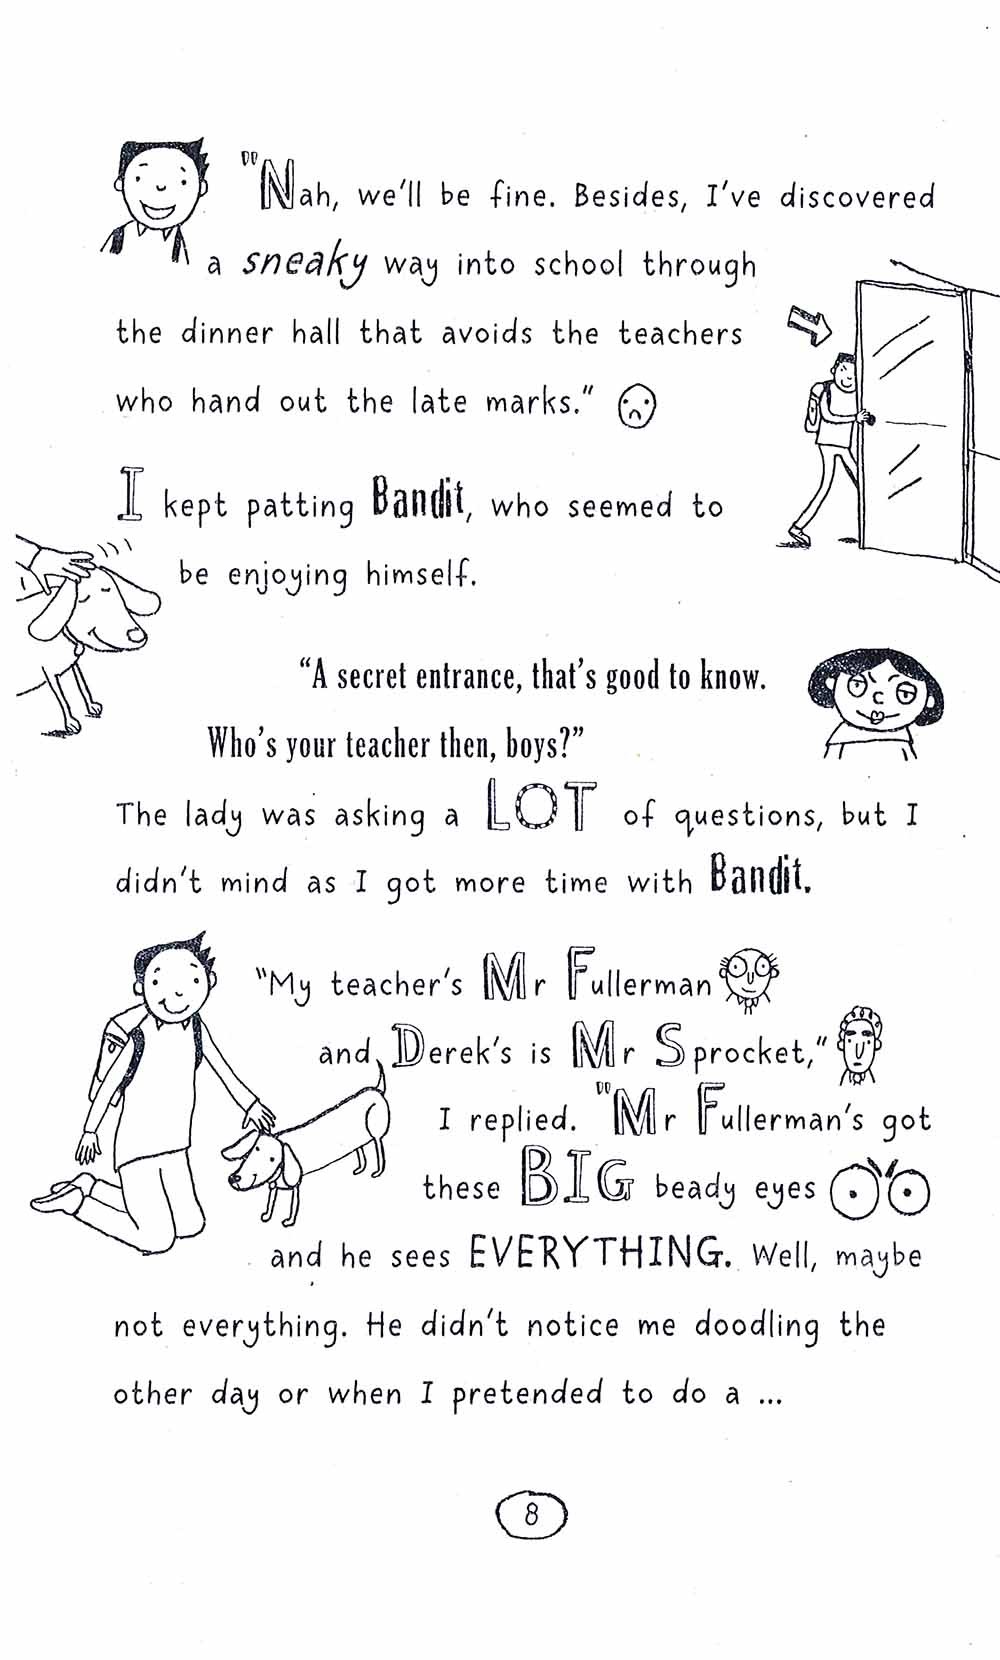 "Nah, we'll be fine. Besides, I've discovered
a sneaky way into school through
the dinner hall that avoids the teachers
who hand out the late marks."
I kept patting Bandit, who seemed to
be enjoying himself.
"A secret entrance, that's good to know.
Who's your teacher then, boys?"
The lady was asking a LOT of questions, but I
didn't mind as I got more time with Bandit.
"My teacher's Mr Fullerman
and Derek's is Mr Sprocket,"
I replied. "Mr Fullerman's got
these BIG beady eyes
and he sees EVERYTHING. Well, maybe
not everything. He didn't notice me doodling the
other day or when I pretended to do a ...
8